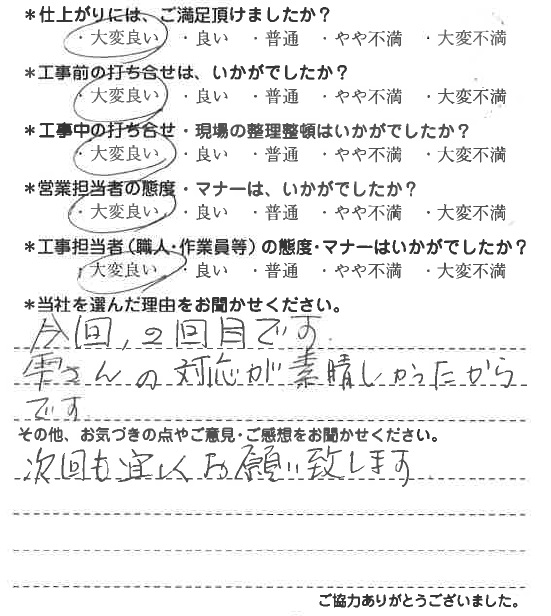 *仕上がりには、ご満足頂けましたか?
・大変良い ・良い ・普通 ・やや不満 ・大変不満
*工事前の打ち合せは、いかがでしたか?
・大変良い ・良い ・普通 ・やや不満 ・大変不満
*工事中の打ち合せ・現場の整理整頓はいかがでしたか?
・大変良い ・良い ・普通 ・やや不満 ・大変不満
*営業担当者の態度・マナーは、いかがでしたか?
・大変良い ・良い ・普通 ・やや不満 ・大変不満
*工事担当者(職人・作業員等)の態度・マナーはいかがでしたか?
・大変良い ・良い ・普通 ・やや不満 ・大変不満
*当社を選んだ理由をお聞かせください。
今回,2回目です.
雫さんの対応が素晴しかったから
です.
その他、お気づきの点やご意見・ご感想をお聞かせください。
次回も宜しくお願い致します
ご協力ありがとうございました。